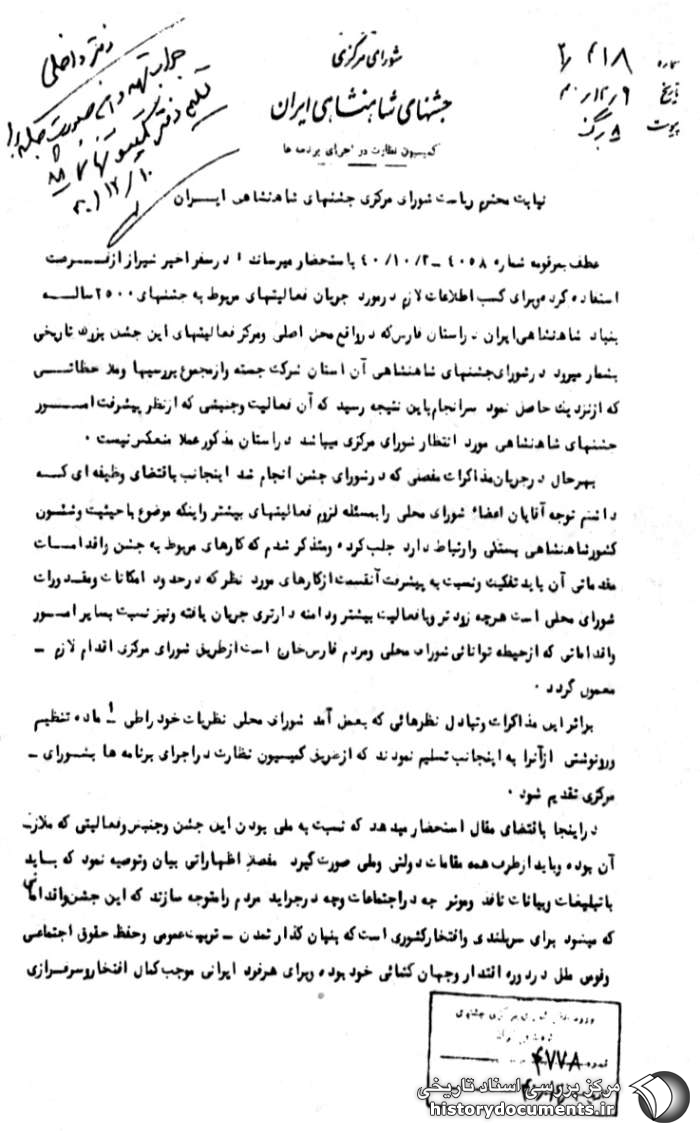 شماره ۴۱۸/۲
تاریخ ۹/۱۲/۴۰
پیوست ۸ برگ
شورای مرکزی
جشنهای شاهنشاهی ایران
کمیسیون نظارت در اجرای برنامه ها
دفتر داخلی
نیابت محترم ریاست شورای مرکزی جشنهای شاهنشاهی ایران
عطف بمرقومه شماره ۴۰۵۸ ــ ۴۰/۱۰/۲ باستحضار میرساند در سفر اخیر شیراز از فرصت
استفاده کرده وبرای کسب اطلاعات لازم درمورد جریان فعالیتهای مربوط به جشنهای ۲۵۰۰ ساله
بنیاد شاهنشاهی ایران دراستان فارس که درواقع محل اصلی ومرکز فعالیتهای این جشن بزرگ تاریخی
بشمار میرود درشورای جشنهای شاهنشاهی آن استان شرکت جسته وازمجموع بررسیها وملاحظاتی
که ازنزدیک حاصل نمود سرانجام باین نتیجه رسید که آن فعالیت وجنبشی که ازنظر پیشرفت امور
جشنهای شاهنشاهی مورد انتظار شورای مرکزی میباشد دراستان مذکور عملا منعکس نیست .
بهرحال درجریان مذاکرات مفصلی که درشورای جشن انجام شد اینجانب باقتضای وظیفه ای که
داشتم توجه آقایان اعضاء شورای محلی را بمسئله لزوم فعالیتهای بیشتر واینکه موضوع باحیثیت وشئون
کشورشاهنشاهی بستگی وارتباط دارد جلب کرده ومتذکر شدم که کارهای مربوط به جشن واقدامات
مقدماتی آن باید تفکیک ونسبت به پیشرفت آنقسمت ازکارهای مورد نظر که درحدود امکانات ومقدورات
شورای محلی است هرچه زودتر وبافعالیت بیشتر ودامنه دارتری جریان یافته ونیز نسبت بسایر امور
واقداماتی که ازحیطه توانائی شورای محلی ومردم فارس خارج است ازطریق شورای مرکزی اقدام لازم ــ
معمول گردد .
براثر این مذاکرات وتبادل نظرهائی که بعمل آمد شورای محلی نظریات خود راطی ماده تنظیم
ورونوشتی ازآنرا به اینجانب تسلیم نمودند که ازطریق کمیسیون نظارت دراجرای برنامه ها بشورای ــ
مرکزی تقدیم شود .
دراینجا باقتضای مقال استحضار میدهد که نسبت به ملی بودن این جشن وجنبش وفعالیتی که ملازــ
آن بوده وباید ازطرف همه مقامات دولتی وملی صورت گیرد مفصلا اظهاراتی بیان وتوصیه نمود که باید
باتبلیغات وبیانات نافذ وموثر چه دراجتماعات وچه درجراید مردم رامتوجه سازند که این جشن واقداماتی
که میشود برای سربلندی وافتخارکشوری است که بنیان گذار تمدن ــ تربیت عمومی وحفظ حقوق اجتماعی
وقومی ملل در دوره اقتدار وجهان گشائی خود بوده وبرای هرفرد ایرانی موجب کمال افتخار وسرفرازی
۴۷۷۸
مرکز بررسی اسناد تاریخی
historydocuments.ir